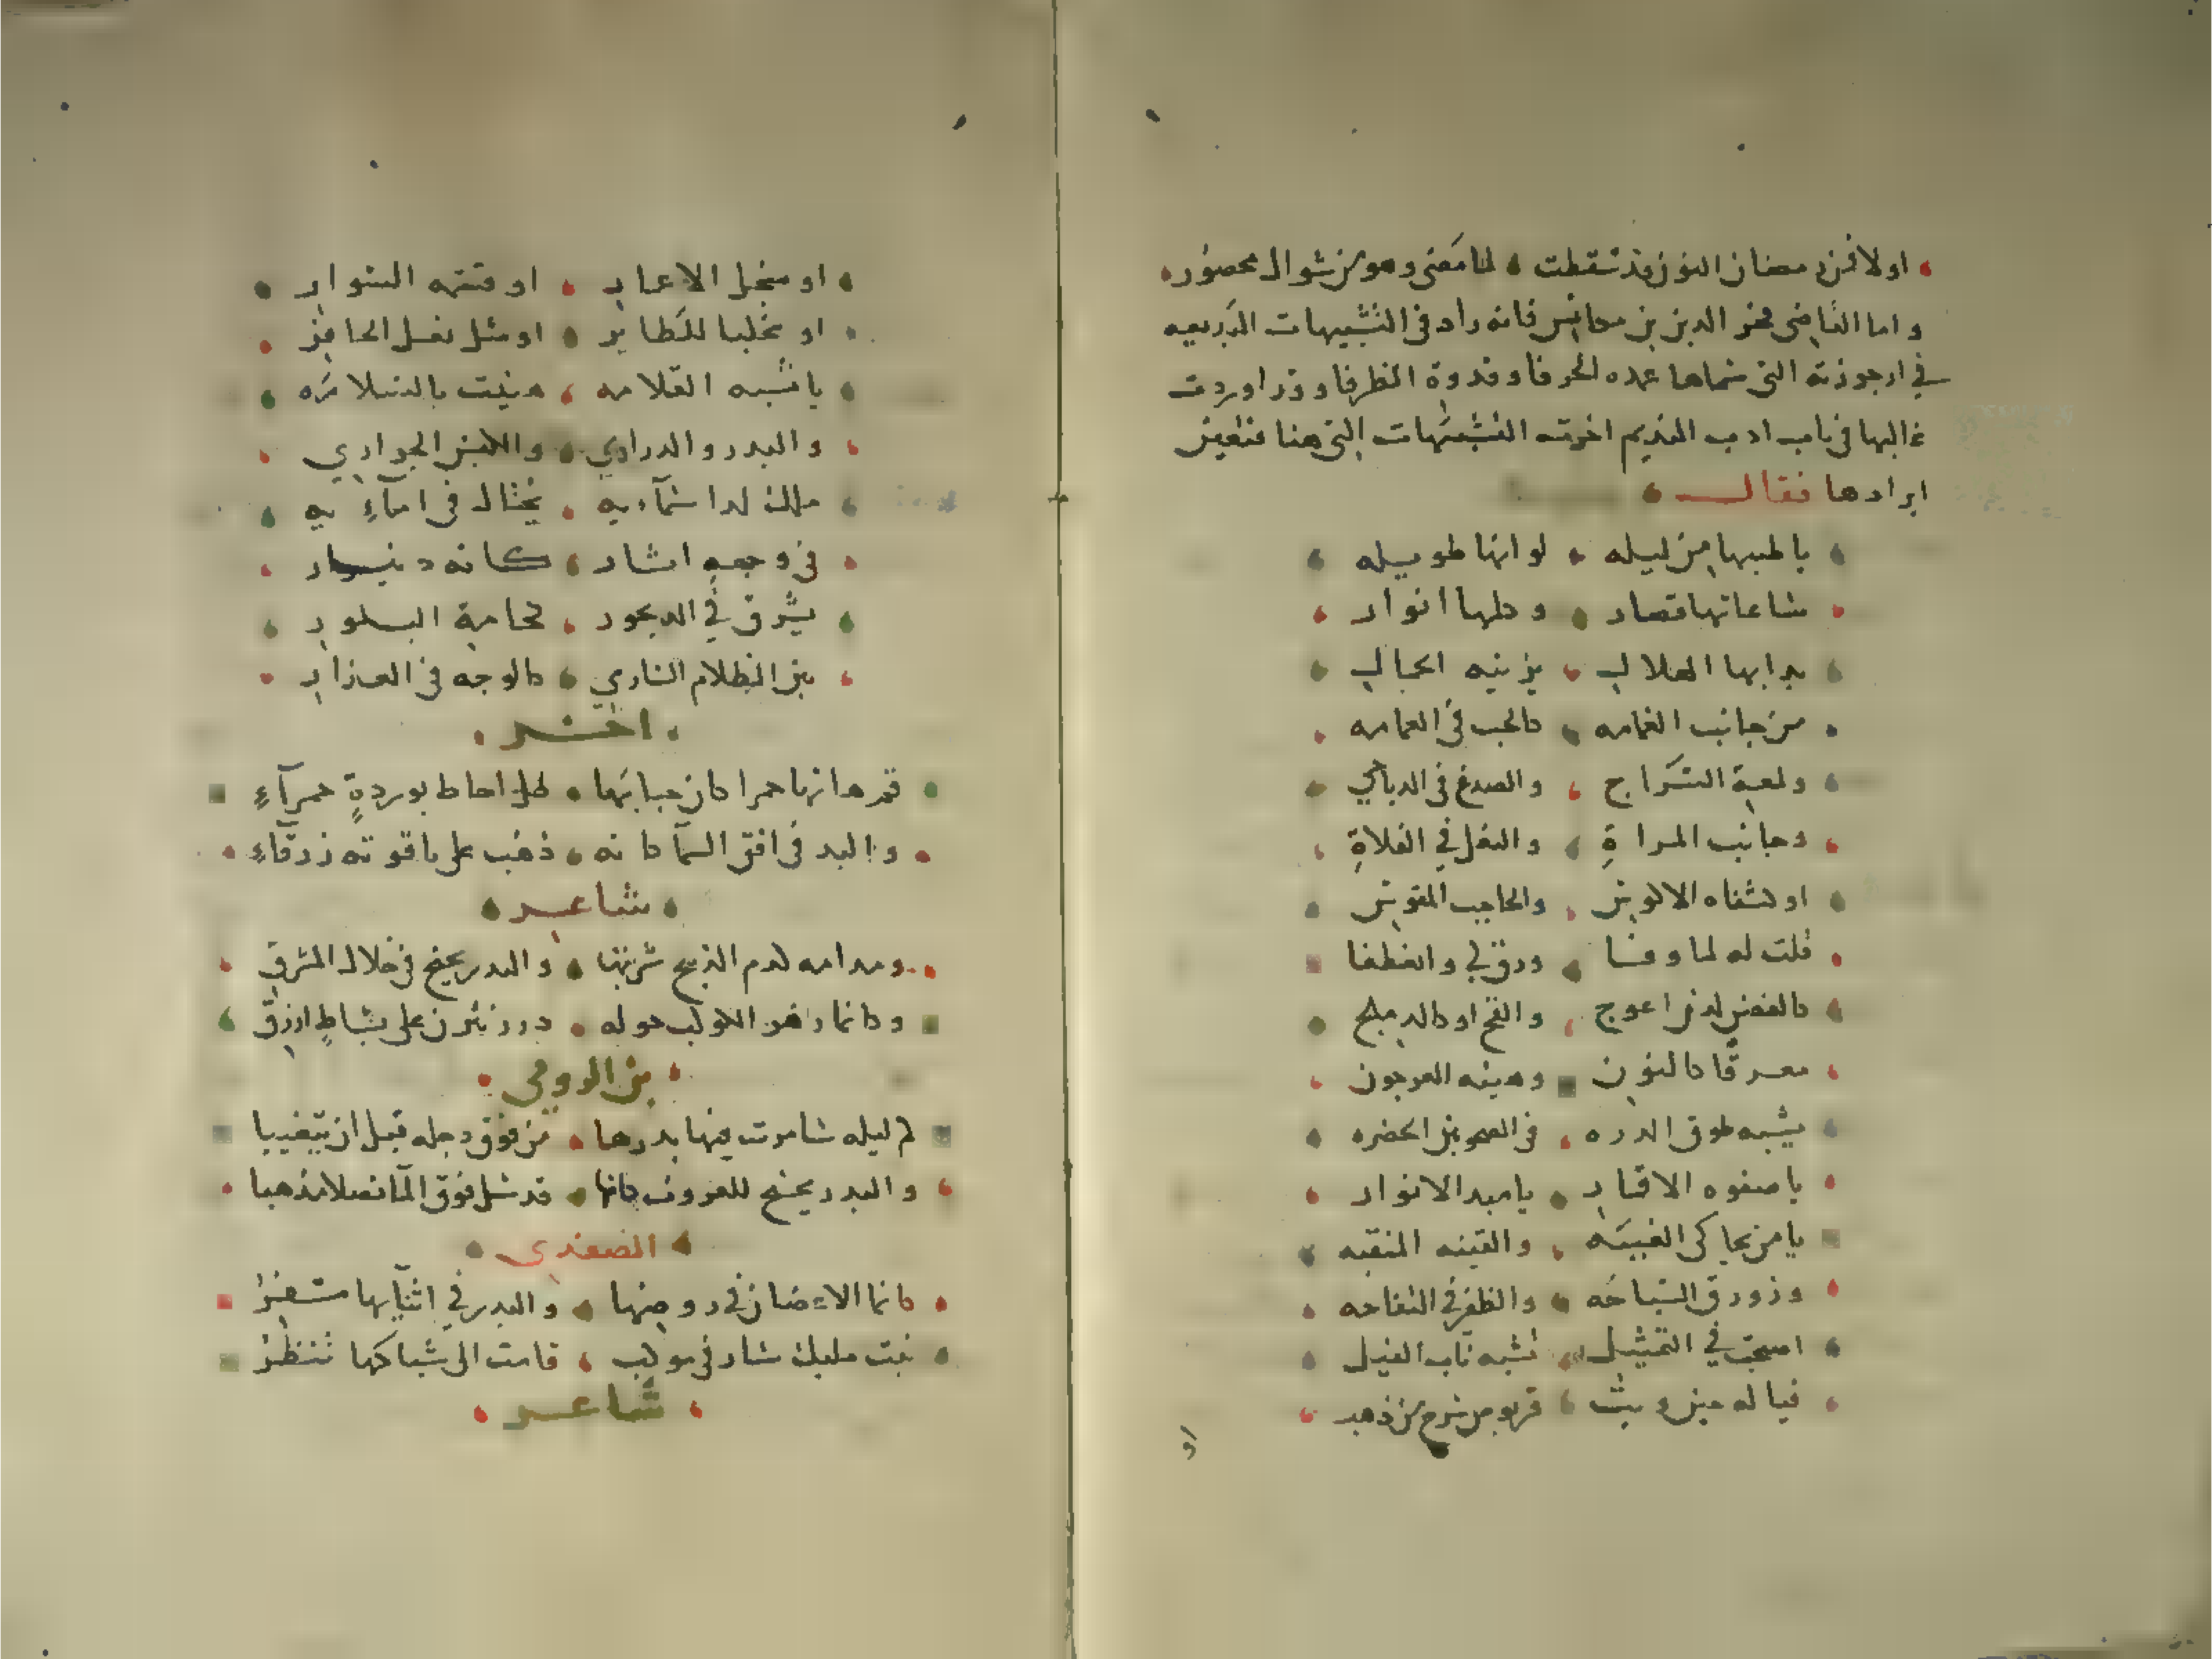 اولا فمن رمضان النون قد سقطت لها معنى وهو من شوال محصور
واما القاضي فخر الدين بن مكانس فانه زاد في التشبيهات البديعه
في ارجوزته التي سماها عمدة الحرفا وقدوة الظرفا وقد اوردت
غالبها في باب ادب النديم اخرت التشبيهات التي هنا فتعين
ايرادها فقال
يا طيبها من ليله لو انها طويله
ساعاتها قصار وكلها انوار
بدا بها الهلال يزينه الجمال
من جانب الغمامه كالحب في العمامه
ولعبة السراج والصدغ في الدياجي
وجانب المراة والنعل في الفلاة
او كشفاه الاكوس والحاجب المقوس
قلت له لما وفا ورق لي وانعطفا
كالغصن لدن اعوج والفخ او كالدملج
معرقا كالنون وهيئه العرجون
يشبه طوق الدره في الصحو بين الخضره
يا صفوه الاقمار يا مبد الانوار
يا من يحاكي الغببه والقينه المنقبه
وزورق السباحه والظفر في التفاحه
اصبحت في التمثيل تشبه ناب الفيل
فيا له حين وثب قربوس سرج من ذهب
او
او منجل الاعمار او قتته السوار
او مخلبا للطاير او مثل نعل الحافر
يا شبه القلامه هنيت بالسلامه
والبدر والدراري والكنس الجواري
ملك له اسماءيه يختال في اماءيه
في وجهه اثار كانه دينار
يشرق في الديجور كجامة البلور
بين الظلام الساري كالوجه في العذار
اخر
قم هاتها حمرا كان حبابها طل احاط بوردةٍ حمرآءِ
والبدر في افق السما كانه ذهب على ياقوته زرقاءِ
شاعر
ومدامه كدم الذبيح شربتها والبدر يجنح في خلال المشرق
وكانما زهر الكواكب حوله درر نثرن على بساطٍ ازرق
بن الرومي
كم ليله سامرت فيها بدرها من فوق دجله قبل ان يتغيبا
والبدر يجنح للغروب كانما قد سل فوق الما نصلا مذهبا
الصفدي
كانما الاغصان في دوحها والبدر في اثنايها مسفرُ
بنت مليك سار في موكب قامت الى شباكها تنظرُ
شاعر